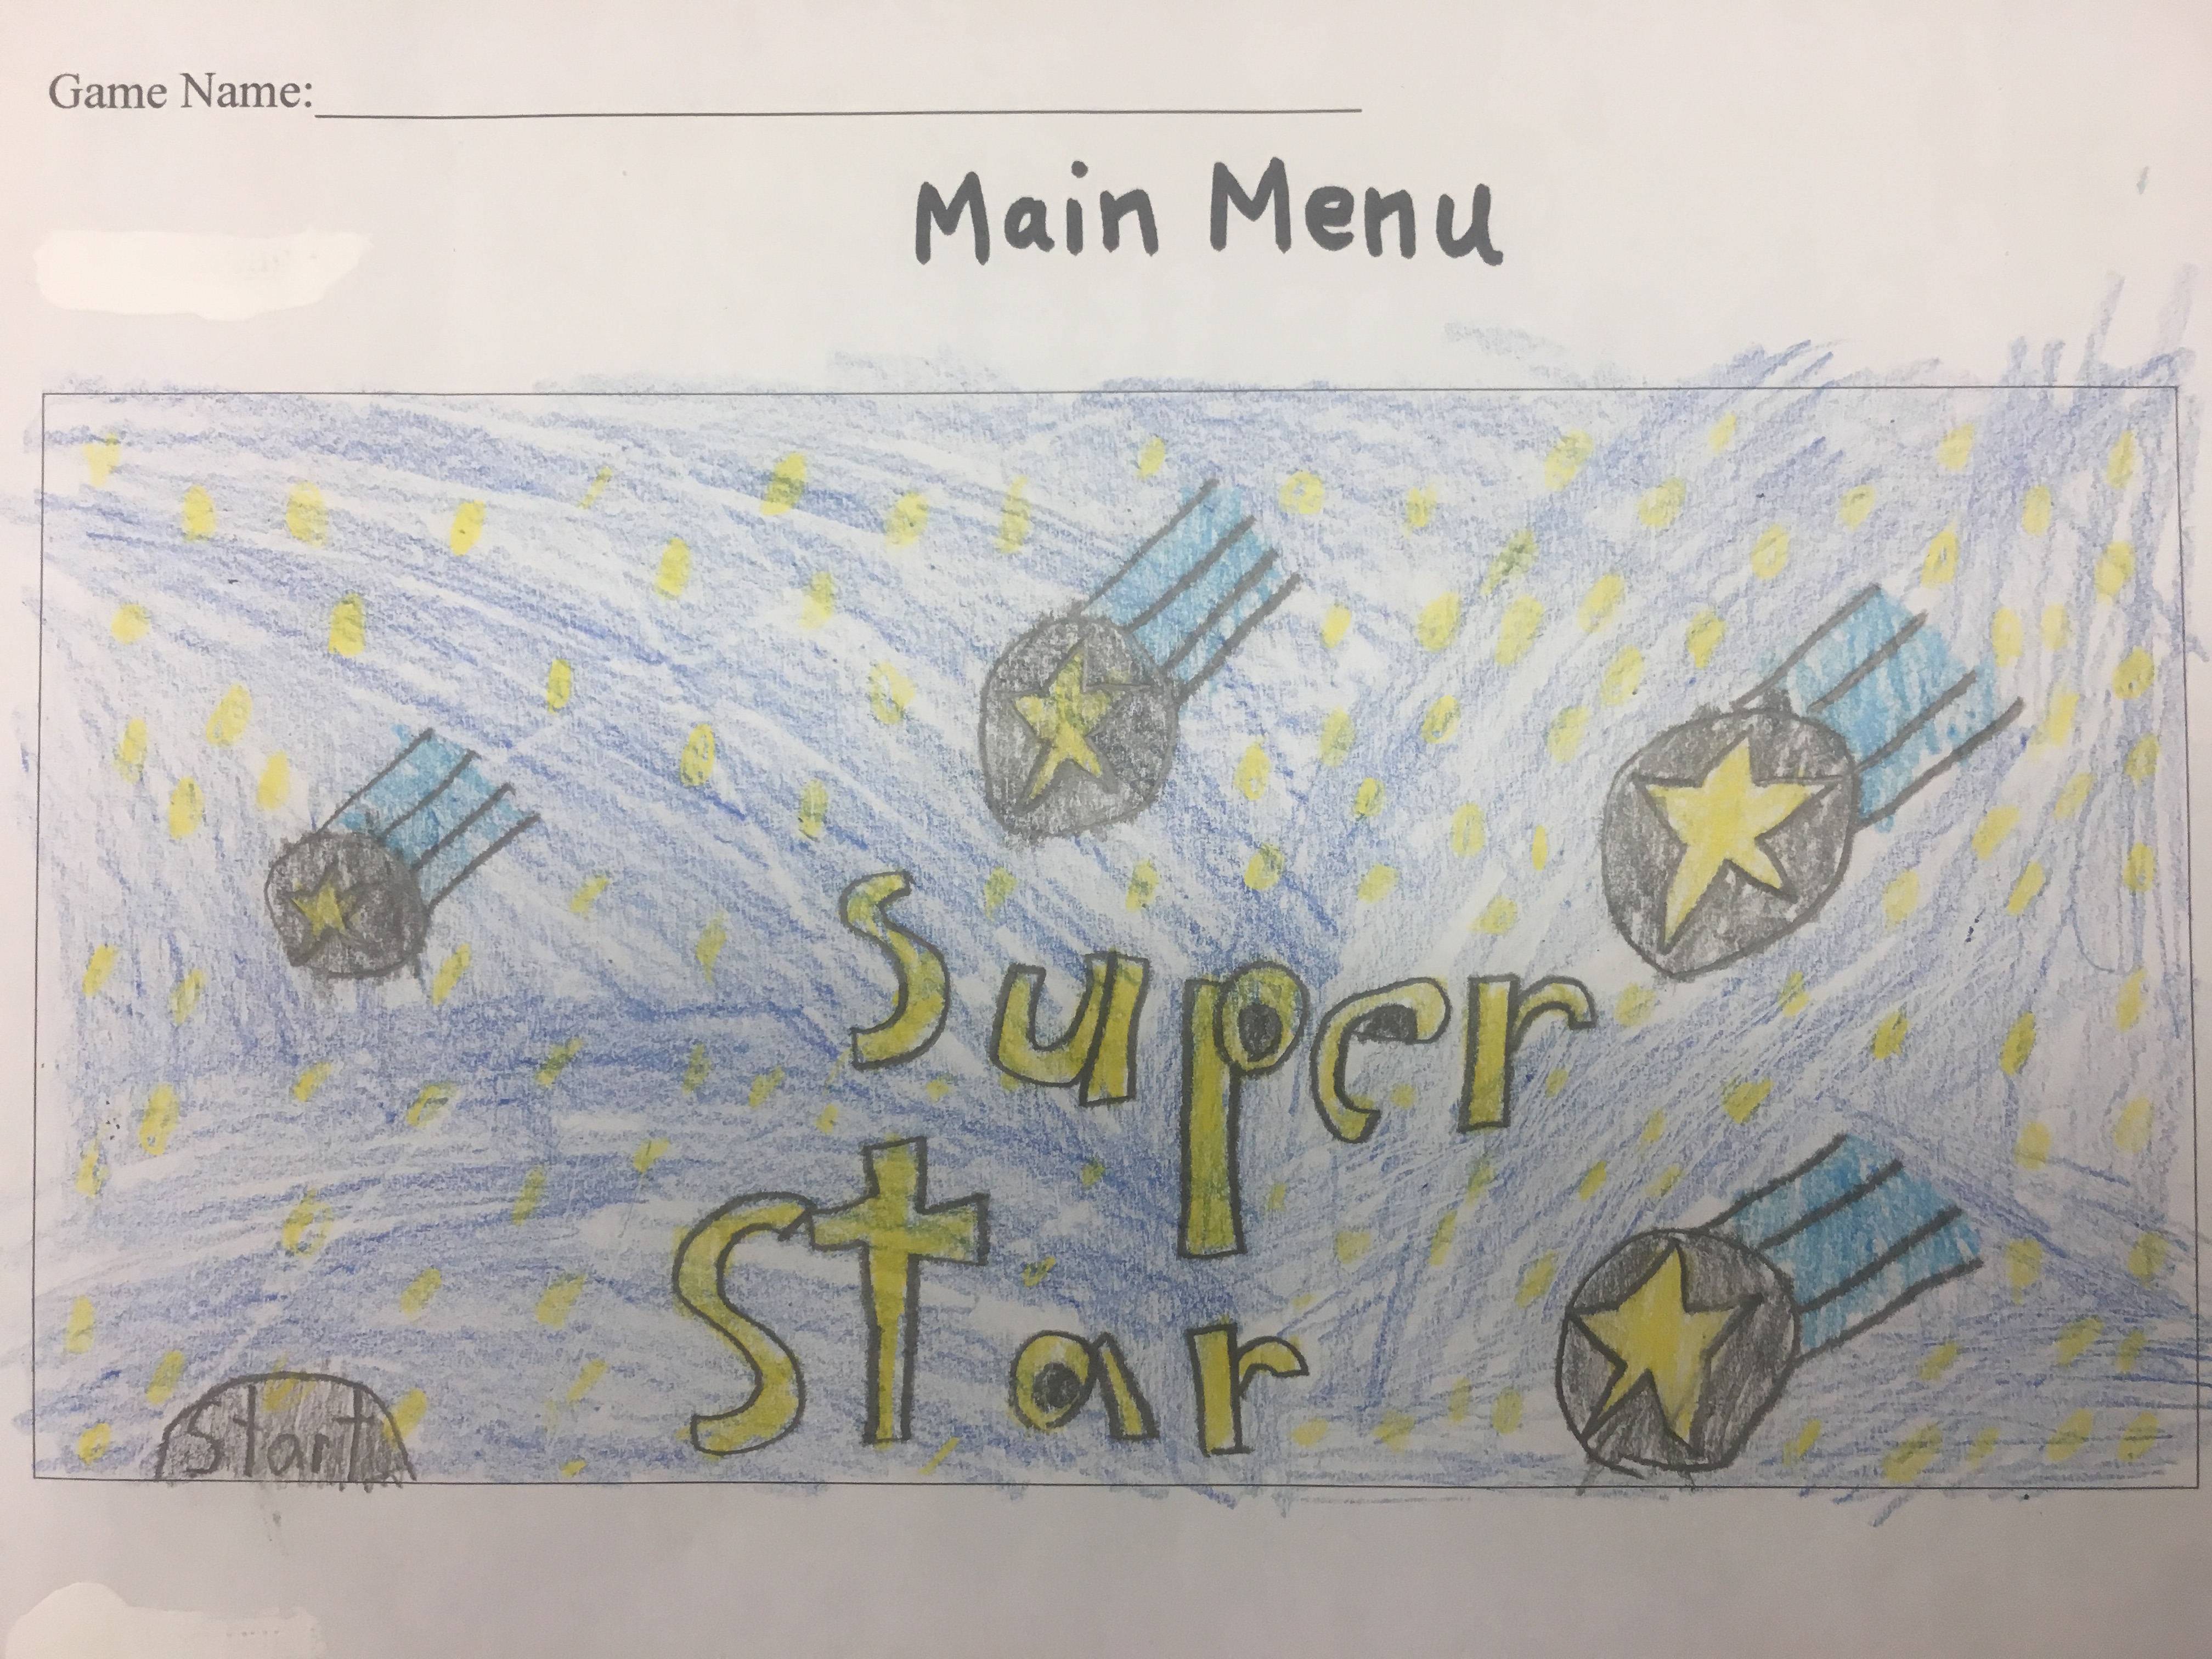 Game Name:
Main Menu
Super
Star
Start